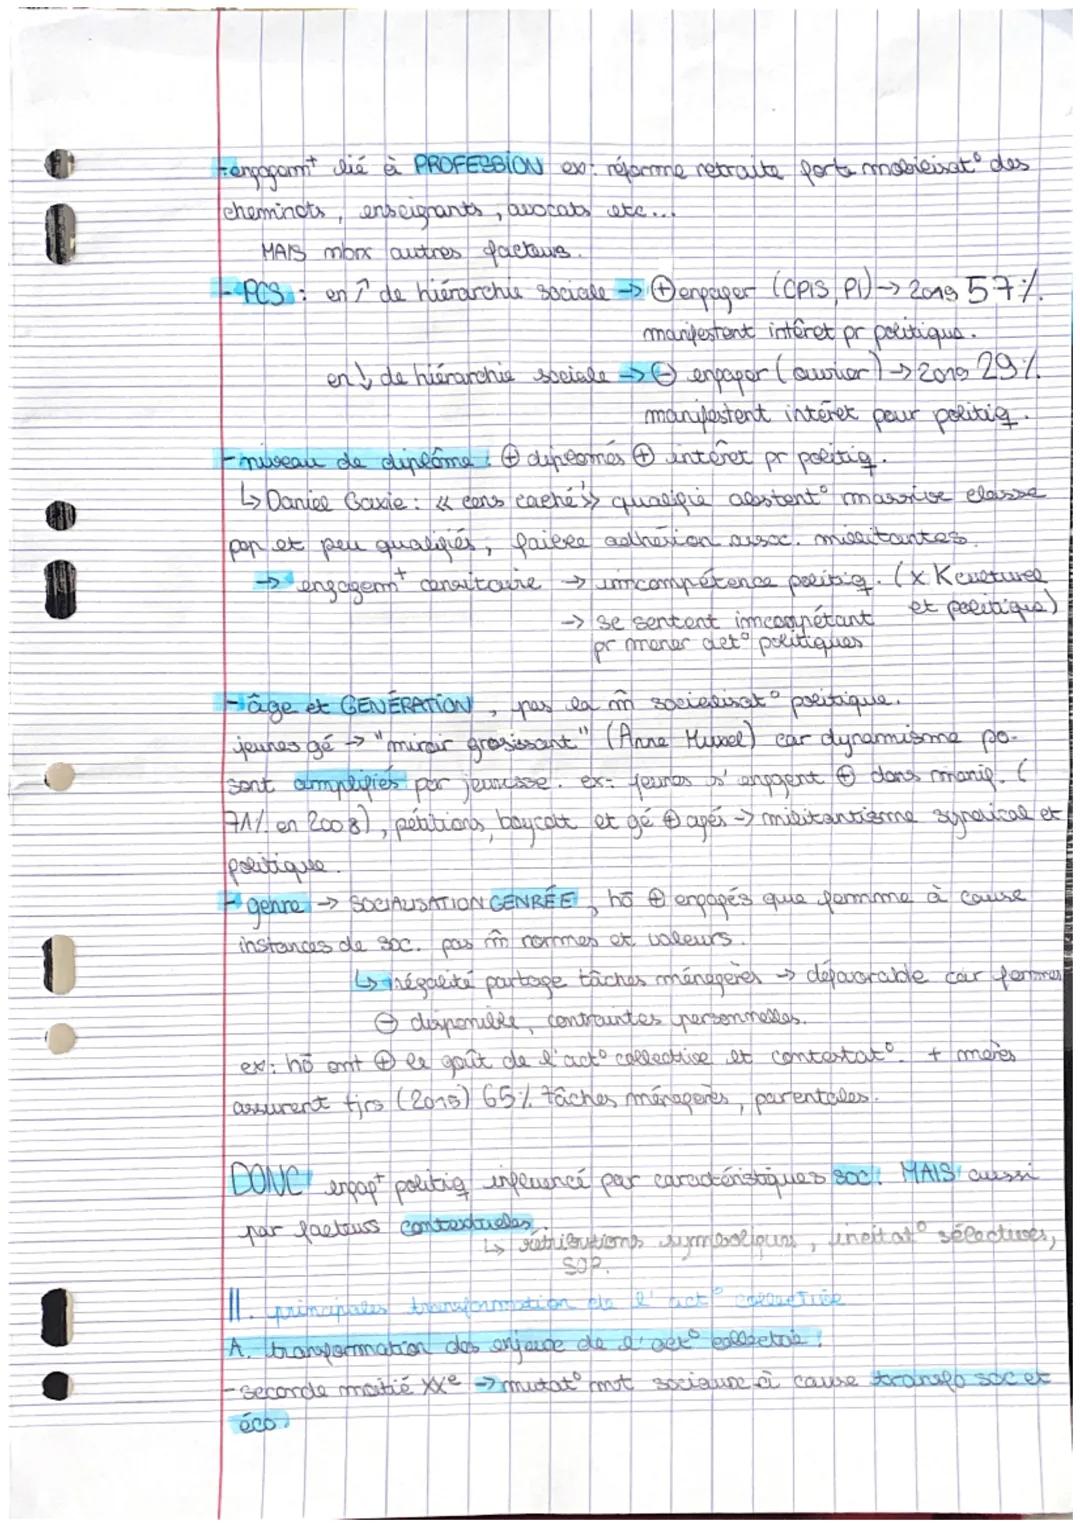 - engagemt lié à PROFESSION ex: réforme retraite forte mobilisat° des
cheminots, enseignants, avocats etc...
MAIS mbrx autres facteurs.
- PCS : en ↑ de hiérarchie sociale → ⊕ engager (CPIS, PI) → 2019 57%
manifestent intêret pr politique.
en ↓ de hiérarchie sociale → ⊖ engager (ouvrier) → 2019 29%
manifestent intêret pour politiq.
- niveau de diplôme : ⊕ diplomés ⊕ intêret pr politiq.
↳ Daniel Gaxie : « cens caché » qualifie abstent° massive classe
pop et peu qualifiés, faible adhésion assoc. militantes.
→ engagemt censitaire → imcompétence politiq. (x K culturel
et politique)
→ se sentent imcompétant
pr mener act° politiques
- âge et GENÉRATION, pas la m̂ socialisat° politique.
jeunes gé → "miroir grosissant" (Anne Muxel) car dynamisme po-
sont ammplifiés par jeunesse. ex: jeunes s'enggent ⊕ dans manif. (
71% en 2008), pétitions, boycott et gé ⊕ agés → militantisme syndical et
politique.
- genre → SOCIALISATION GENRÉE, hō ⊕ engagés que femme à cause
instances de soc. pas m̂ normes et valeurs.
↳ inégalité partage tâches ménagères → défavorable car femmes
⊖ disponible, contraintes personnelles.
ex: hō ont ⊕ le goût de l'act° collective et contestat°. + mères
assurent tjrs (2015) 65% tâches ménagères, parentales.
DONC engagt politiq influencé par caractéristiques soc. MAIS aussi
par facteurs contextuelles.
↳ rétributions symboliques, incitat° sélectives,
SOP.
II. principales transformation de l'act° collective
A. transformation des enjeux de l'act° collective :
- seconde moitié XXe → mutat° mvt sociaux à cause transfo soc et
éco.